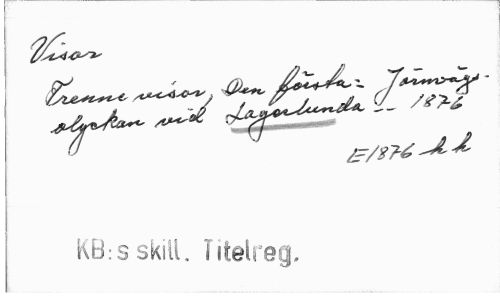 Visor
Trenne visor, Den första = Järnvägs-
olyckan vid Lagerlunda -- 1876
E1876 h h
KB:s skill. Titelreg.